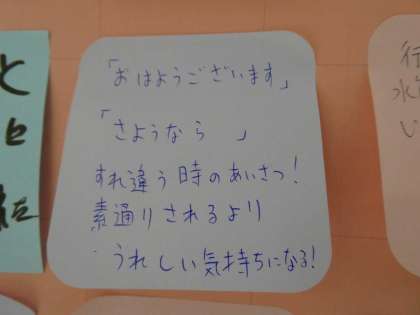 「おはようございます」
「さようなら　」
すれ違う時のあいさつ！
素通りされるより
うれしい気持ちになる！
と
行
水